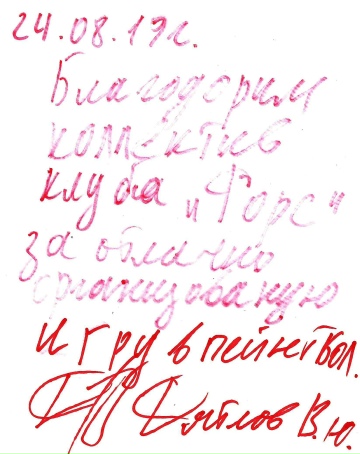 24.08.19г.
Благодорим
коллектив
клуба „Форс"
за отлично
организованую
игру в пейнтбол.
Дятлов В.Ю.